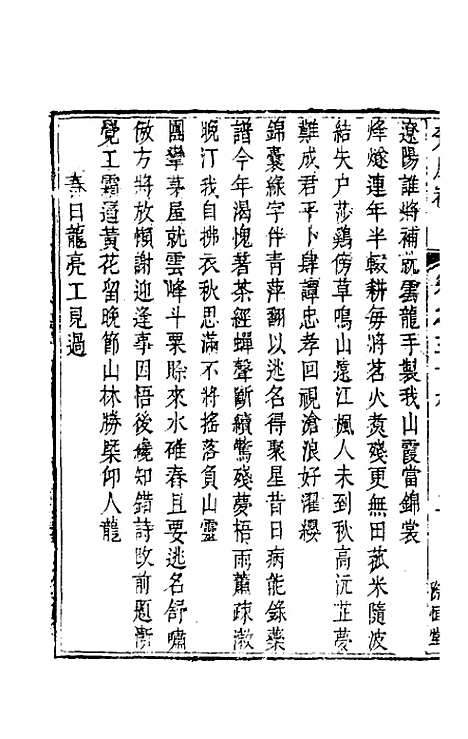 遼陽誰將補䘛雲龍手製我山霞當錦裳
烽燧連年半輟耕每將茗火煑殘更無田菰米隨波
結失户莎鷄傍草鳴山遠江楓人未到秋高沅芷夢
難成君平卜肆譚忠孝回視滄浪好濯纓
錦囊緑字伴青萍翻以逃名得聚星昔日病能錄藥
譜今年渴愧著茶經蟬聲斷續驚殘夢梧雨蕭疎潄
晚汀我自拂衣秋思滿不將搖落負山靈
團攣茅屋就雲峰斗栗賒來水碓舂且要逃名舒嘯
傲方將放懶謝迎逢事因悟後纔知錯詩改前題漸
覺工霜逼黄花留晚節山林勝槩仰人龍
春日龍亮工見過